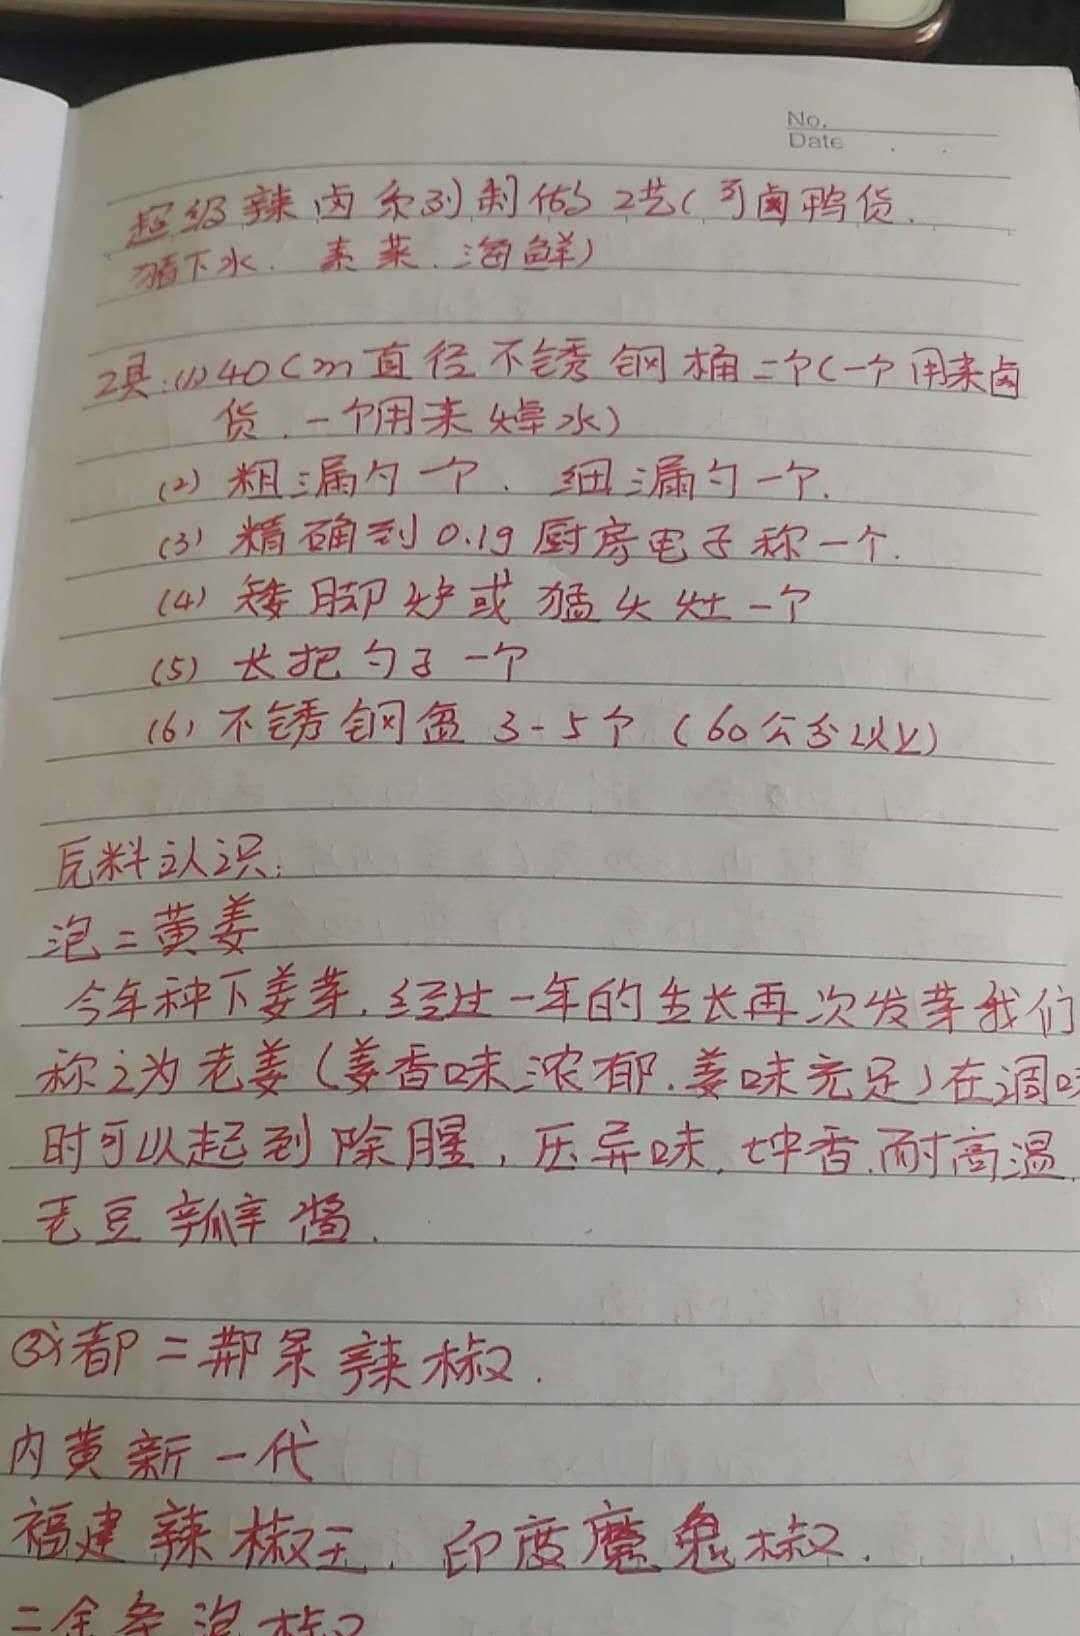 No.
Date
超级辣卤系列制做工艺(可卤鸭货.
猪下水.素菜.海鲜)
工具:(1)40cm直径不锈钢桶二个(一个用来卤
货.一个用来焯水)
(2)粗漏勺一个.细漏勺一个.
(3)精确到0.1g厨房电子称一个.
(4)矮脚炉或猛火灶一个
(5)长把勺子一个
(6)不锈钢盆3-5个(60公分以上)
原料认识:
泡二黄姜
今年种下姜芽.经过一年的生长再次发芽我们
称之为老姜(姜香味浓郁.姜味充足)在调味
时可以起到除腥,压异味.增香.耐高温.
老豆瓣酱.
成都二荆条辣椒.
内黄新一代
福建辣椒王.印度魔鬼椒.
二金条泡椒